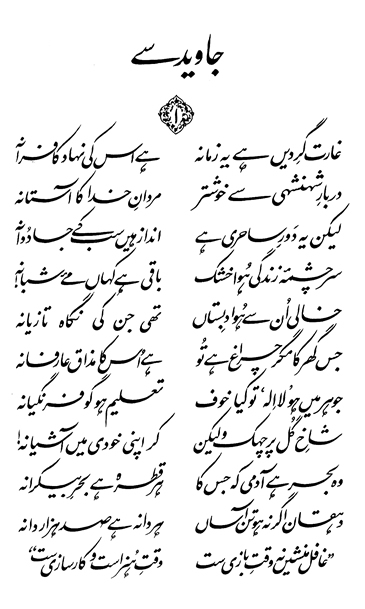 جاوید سے
۱
غارت گرِ دیں ہے یہ زمانہ ہے اس کی نہاد کافرانہ
دربارِ شہنشہی سے خوشتر مردانِ خدا کا آستانہ
لیکن یہ دَورِ ساحری ہے انداز ہیں سب کے جادُوانہ
سرچشمۂ زندگی ہُوا خشک باقی ہے کہاں مَےِ شبانہ!
خالی اُن سے ہُوا دبستاں تھی جن کی نگاہ تازیانہ
جس گھر کا مگر چراغ ہے تُو ہے اُس کا مذاق عارفانہ
جوہر میں ہو لااِلہ، تو کیا خوف تعلیم ہو گو فرنگیانہ
شاخِ گُل پر چہک ولیکن کر اپنی خودی میں آشیانہ!
وہ بحر ہے آدمی کہ جس کا ہر قطرہ ہے بحرِ بیکرانہ
دہقان اگر نہ ہو تن آساں ہر دانہ ہے صد ہزار دانہ
”غافل منشیں نہ وقتِ بازی ست وقتِ ہُنر است و کارسازی ست“